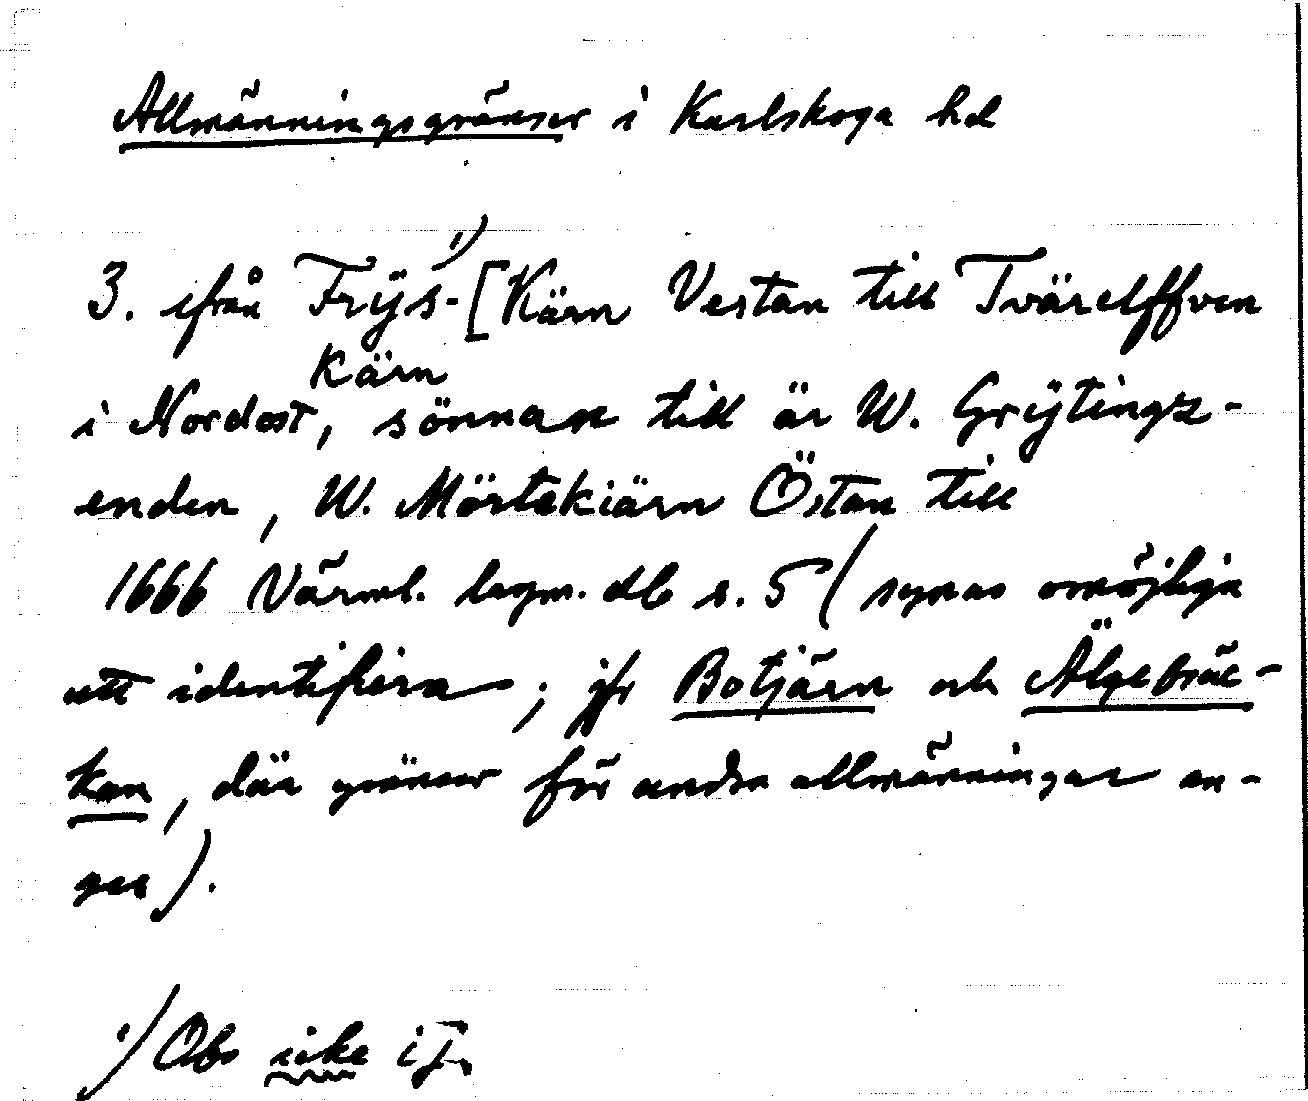 Allmänningsgränser i Karlskoga hd
3. ifrån Frÿs-¹⁾[Kärn Vestan till Tvärelffven
Kärn
i Nordost, sönnan till är W. Grÿtingz-
enden, W. Mörtekiärn Östan till
1666 Värml. lagm. db s. 5 (synas omöjliga
att identifiera; jfr Botjärn och Älgebräc-
kan, där gränser för andra allmänningar an-
ges).
¹⁾ Obs icke ij